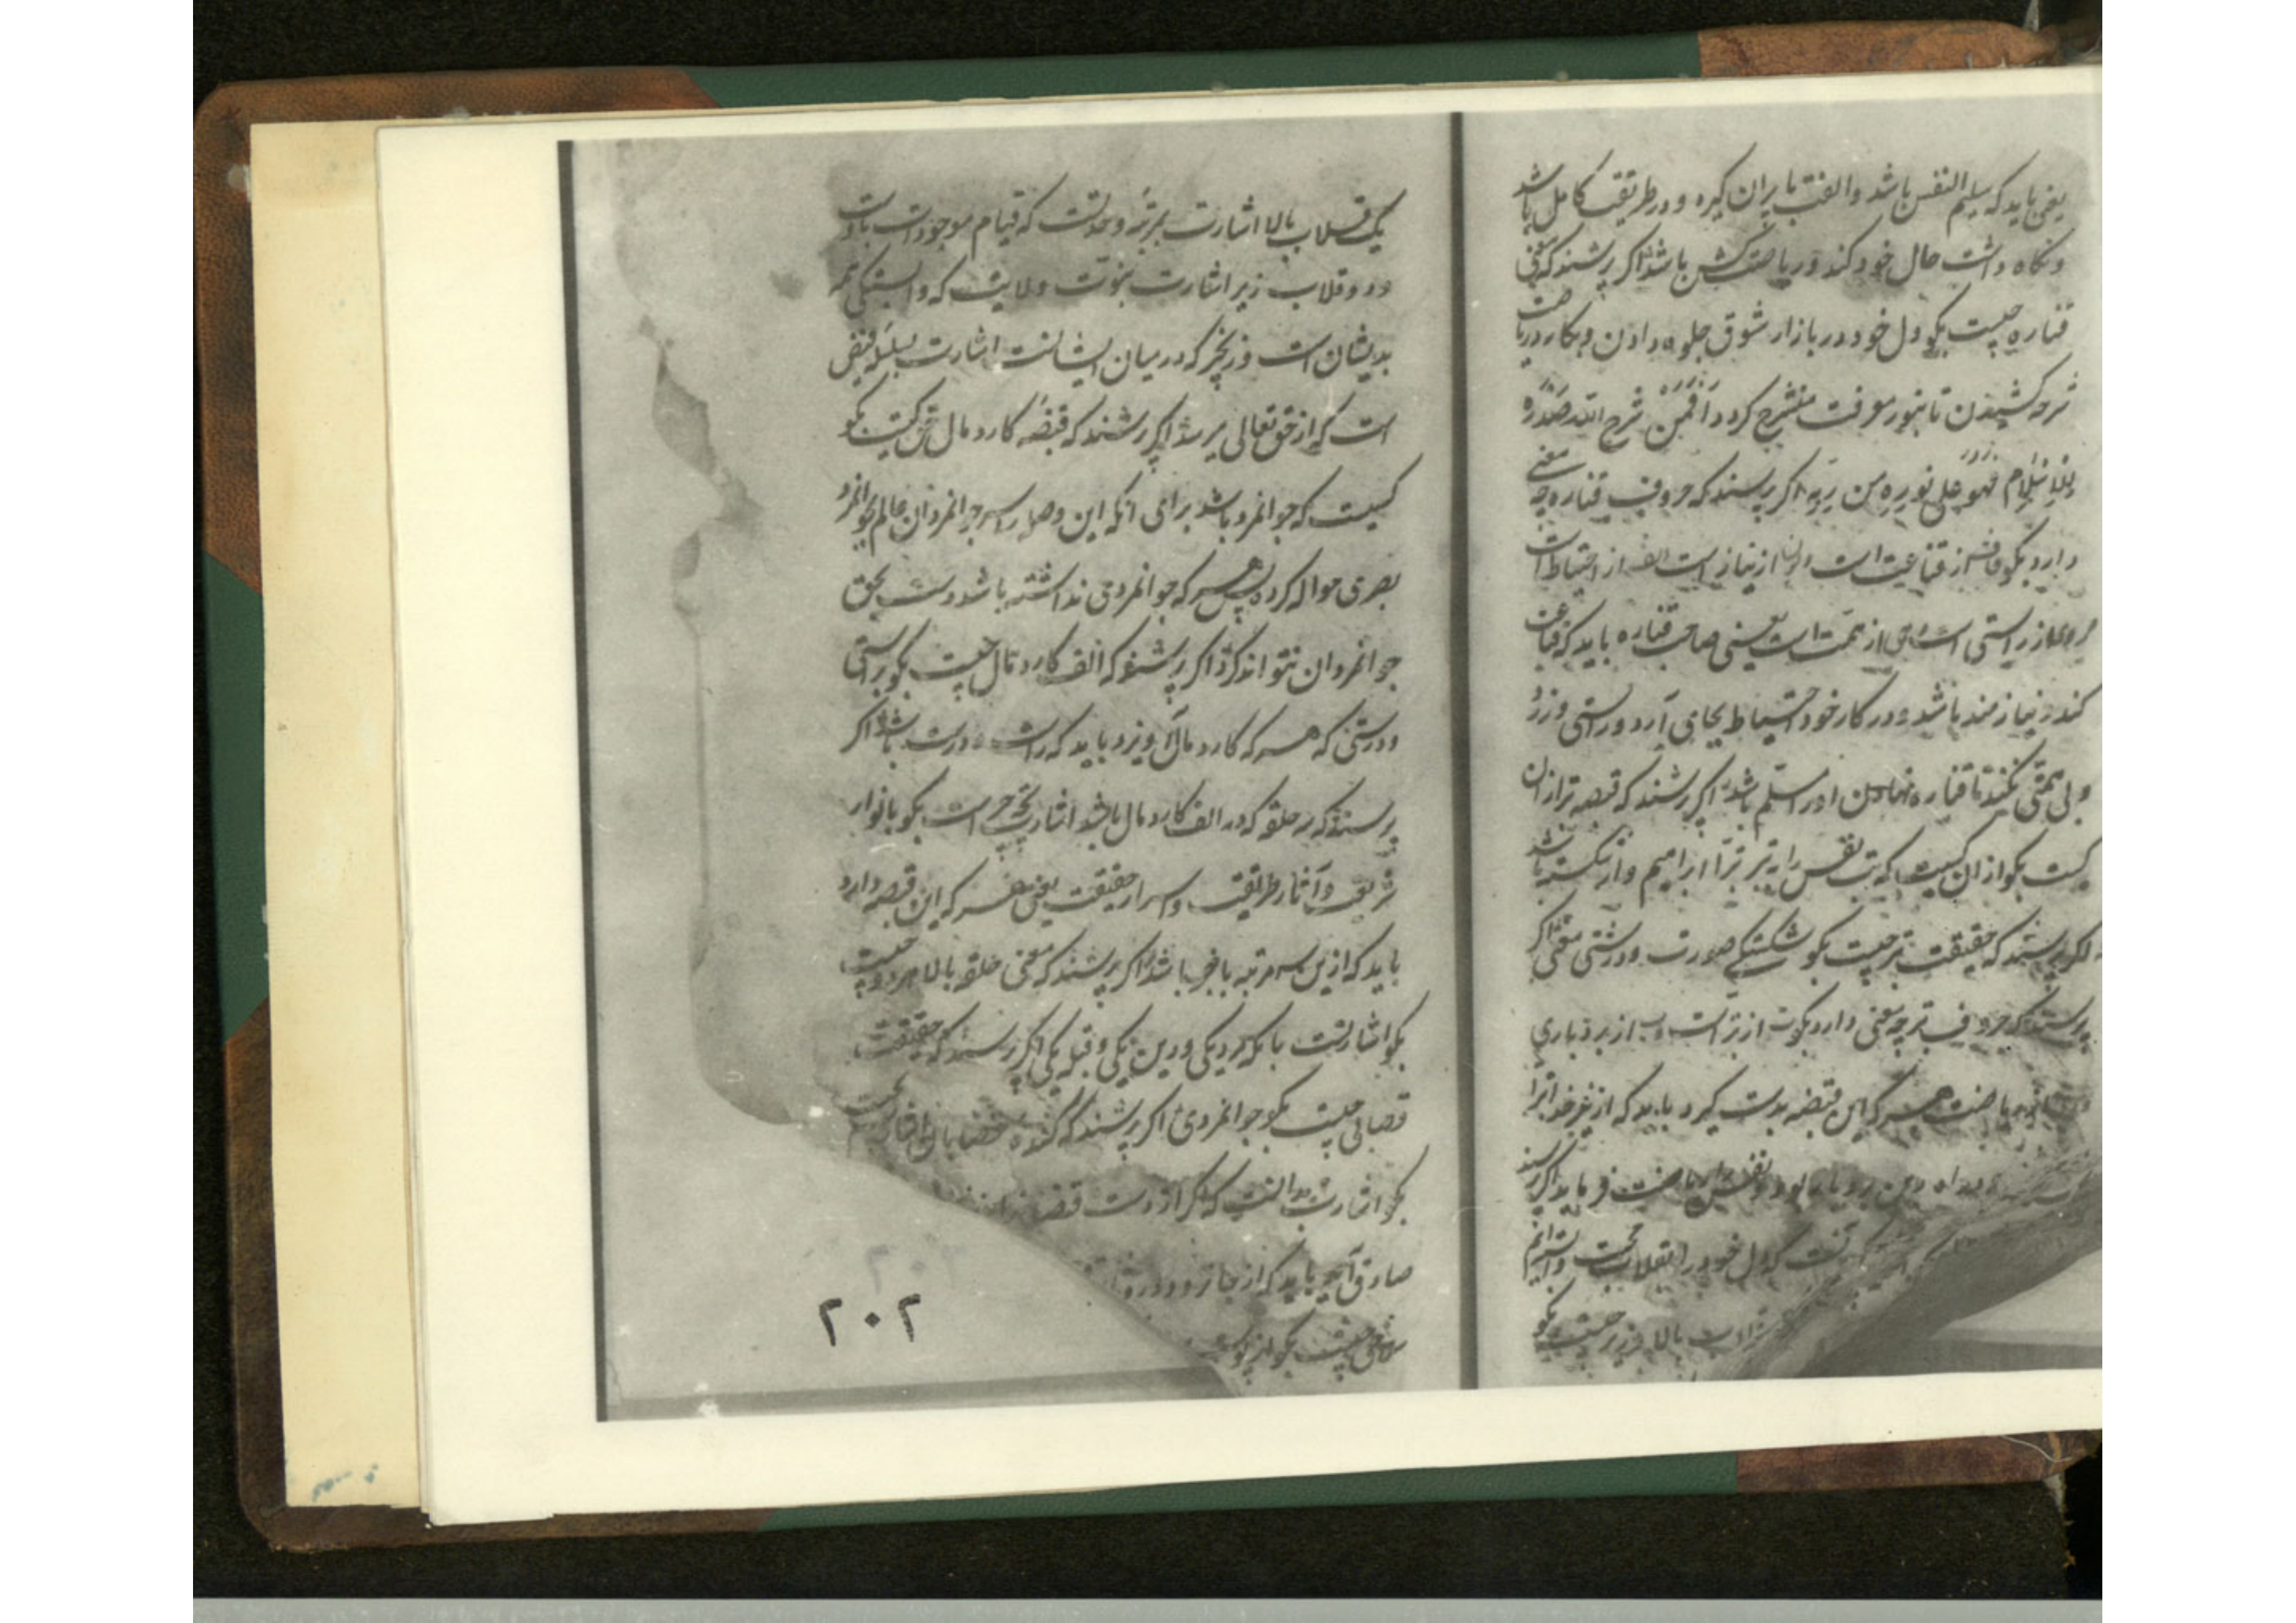 یعنی باید که سلیم النفس باشد والفت با پیران کیرد ودر طریقت کامل باشد
ونکاه داشت حال خود کند وریاضت کش باشد اکر پرسند که معنی
قناره چیست بکو دل خود در بازار شوق جلوه دادن وبکار ریاضت
شرحه کشیدن تا بنور معرفت منشرح کردد أفمن شرح الله صدره
للإسلام فهو على نور من ربه اکر پرسند که حروف قناره چه معنی
دارد بکو قاف از قناعت است ونون از نیاز است الف از احتیاط است
از راستی است وهی از همت است یعنی صاحب قناره باید که قناعت
کند ونیازمند باشد ودر کار خود احتیاط بجای آرد وراستی ورزد
وبی همتی نکند تا قناره نهادن او را مسلم باشد اکر پرسند که قبضه تر از ان
کیست بکو از ان کسیت که بت نفس را به تبر تبرا ابراهیم وار شکسته باشد
اکر پرسند که حقیقت تبر چیست بکو شکستکی صورت ودرستی معنی اکر
پرسند که حروف تبر چه معنی دارد بکو ت از تبراست وب از بردباری
ریاضت هر که این قبضه بدست کیرد باید که از غیر خدا تبرا
بردبار بود ونفس را ریاضت فرماید اکر پرسند
آنست که دل خود را بقلاب محبت
قلاب بالا وزیر چیست بکو
یک قلاب بالا اشارت بمرتبه وحدتست که قیام موجودات باوست
ودو قلاب زیر اشارت بنبوت وولایت که وابستکی همه
بدیشان است وزنجیر که در میان ایشانست اشارت بسلسله فیض
است که از حق تعالی میرسد اکر پرسند که قبضه کارد مال حق کیست بکو
کسیت که جوانمرد باشد برای آنکه این وصله را سر جوانمردان عالم جوانمرد
بصری حواله کرده پس هر که جوانمردی نداشته باشد دست بحق
جوانمردان نتواند کرد اکر پرسند که الف کارد مال چیست بکو راستی
ودرستی که هر که کارد مال آویزد باید که راست ودرست باشد اکر
پرسند که سه حلقه که در الف کارد مال باشد اشارت بچه چیز است بکو بانوار
شریعت وآثار طریقت واسرار حقیقت یعنی هر که این قبضه دارد
باید که ازین سه مرتبه باخبر باشد اکر پرسند که معنی حلقه بالا چیست
بکو اشارتست بانکه مرد یکی ودین یکی وقبله یکی اکر پرسند که حقیقت
قصابی چیست بکو جوانمردی اکر پرسند که کنده قصابان
بکو اشارت بدانست که اکر از دست قبضه
صادق آید باید که از جا نرود
معنی چیست بکو از پوست
۲۰۲